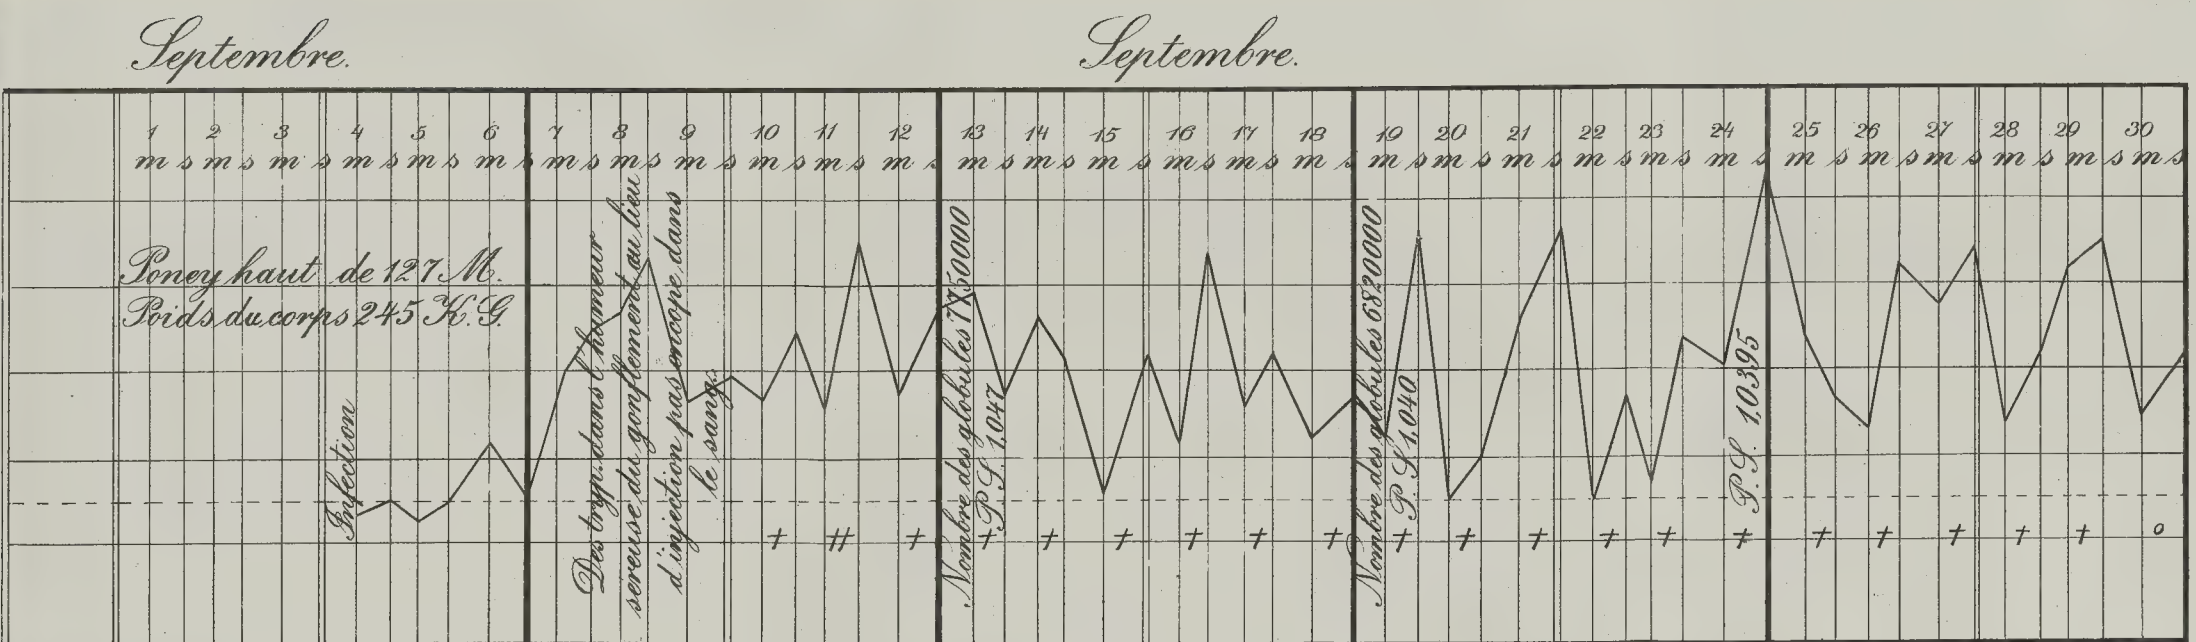 Septembre. Septembre.
1 2 3 4 5 6 7 8 9 10 11 12 13 14 15 16 17 18 19 20 21 22 23 24 25 26 27 28 29 30
m s m s m s m s m s m s m s m s m s m s m s m s m s m s m s m s m s m s m s m s m s m s m s m s m s m s m s m s m s m s
Poney haut de 127 M.
Poids du corps 245 K.G.
Infection
Des tryp. dans l'humeur
sereuse du gonflement au lieu
d'injection pas encope dans
le sang.
Nombre des globules 7750000
P.S. 1.047
Nombre des globules 6820000
P.S. 1.040
P.S. 1.0395
+ # + + + + + + + + + + + + + + + + + + o